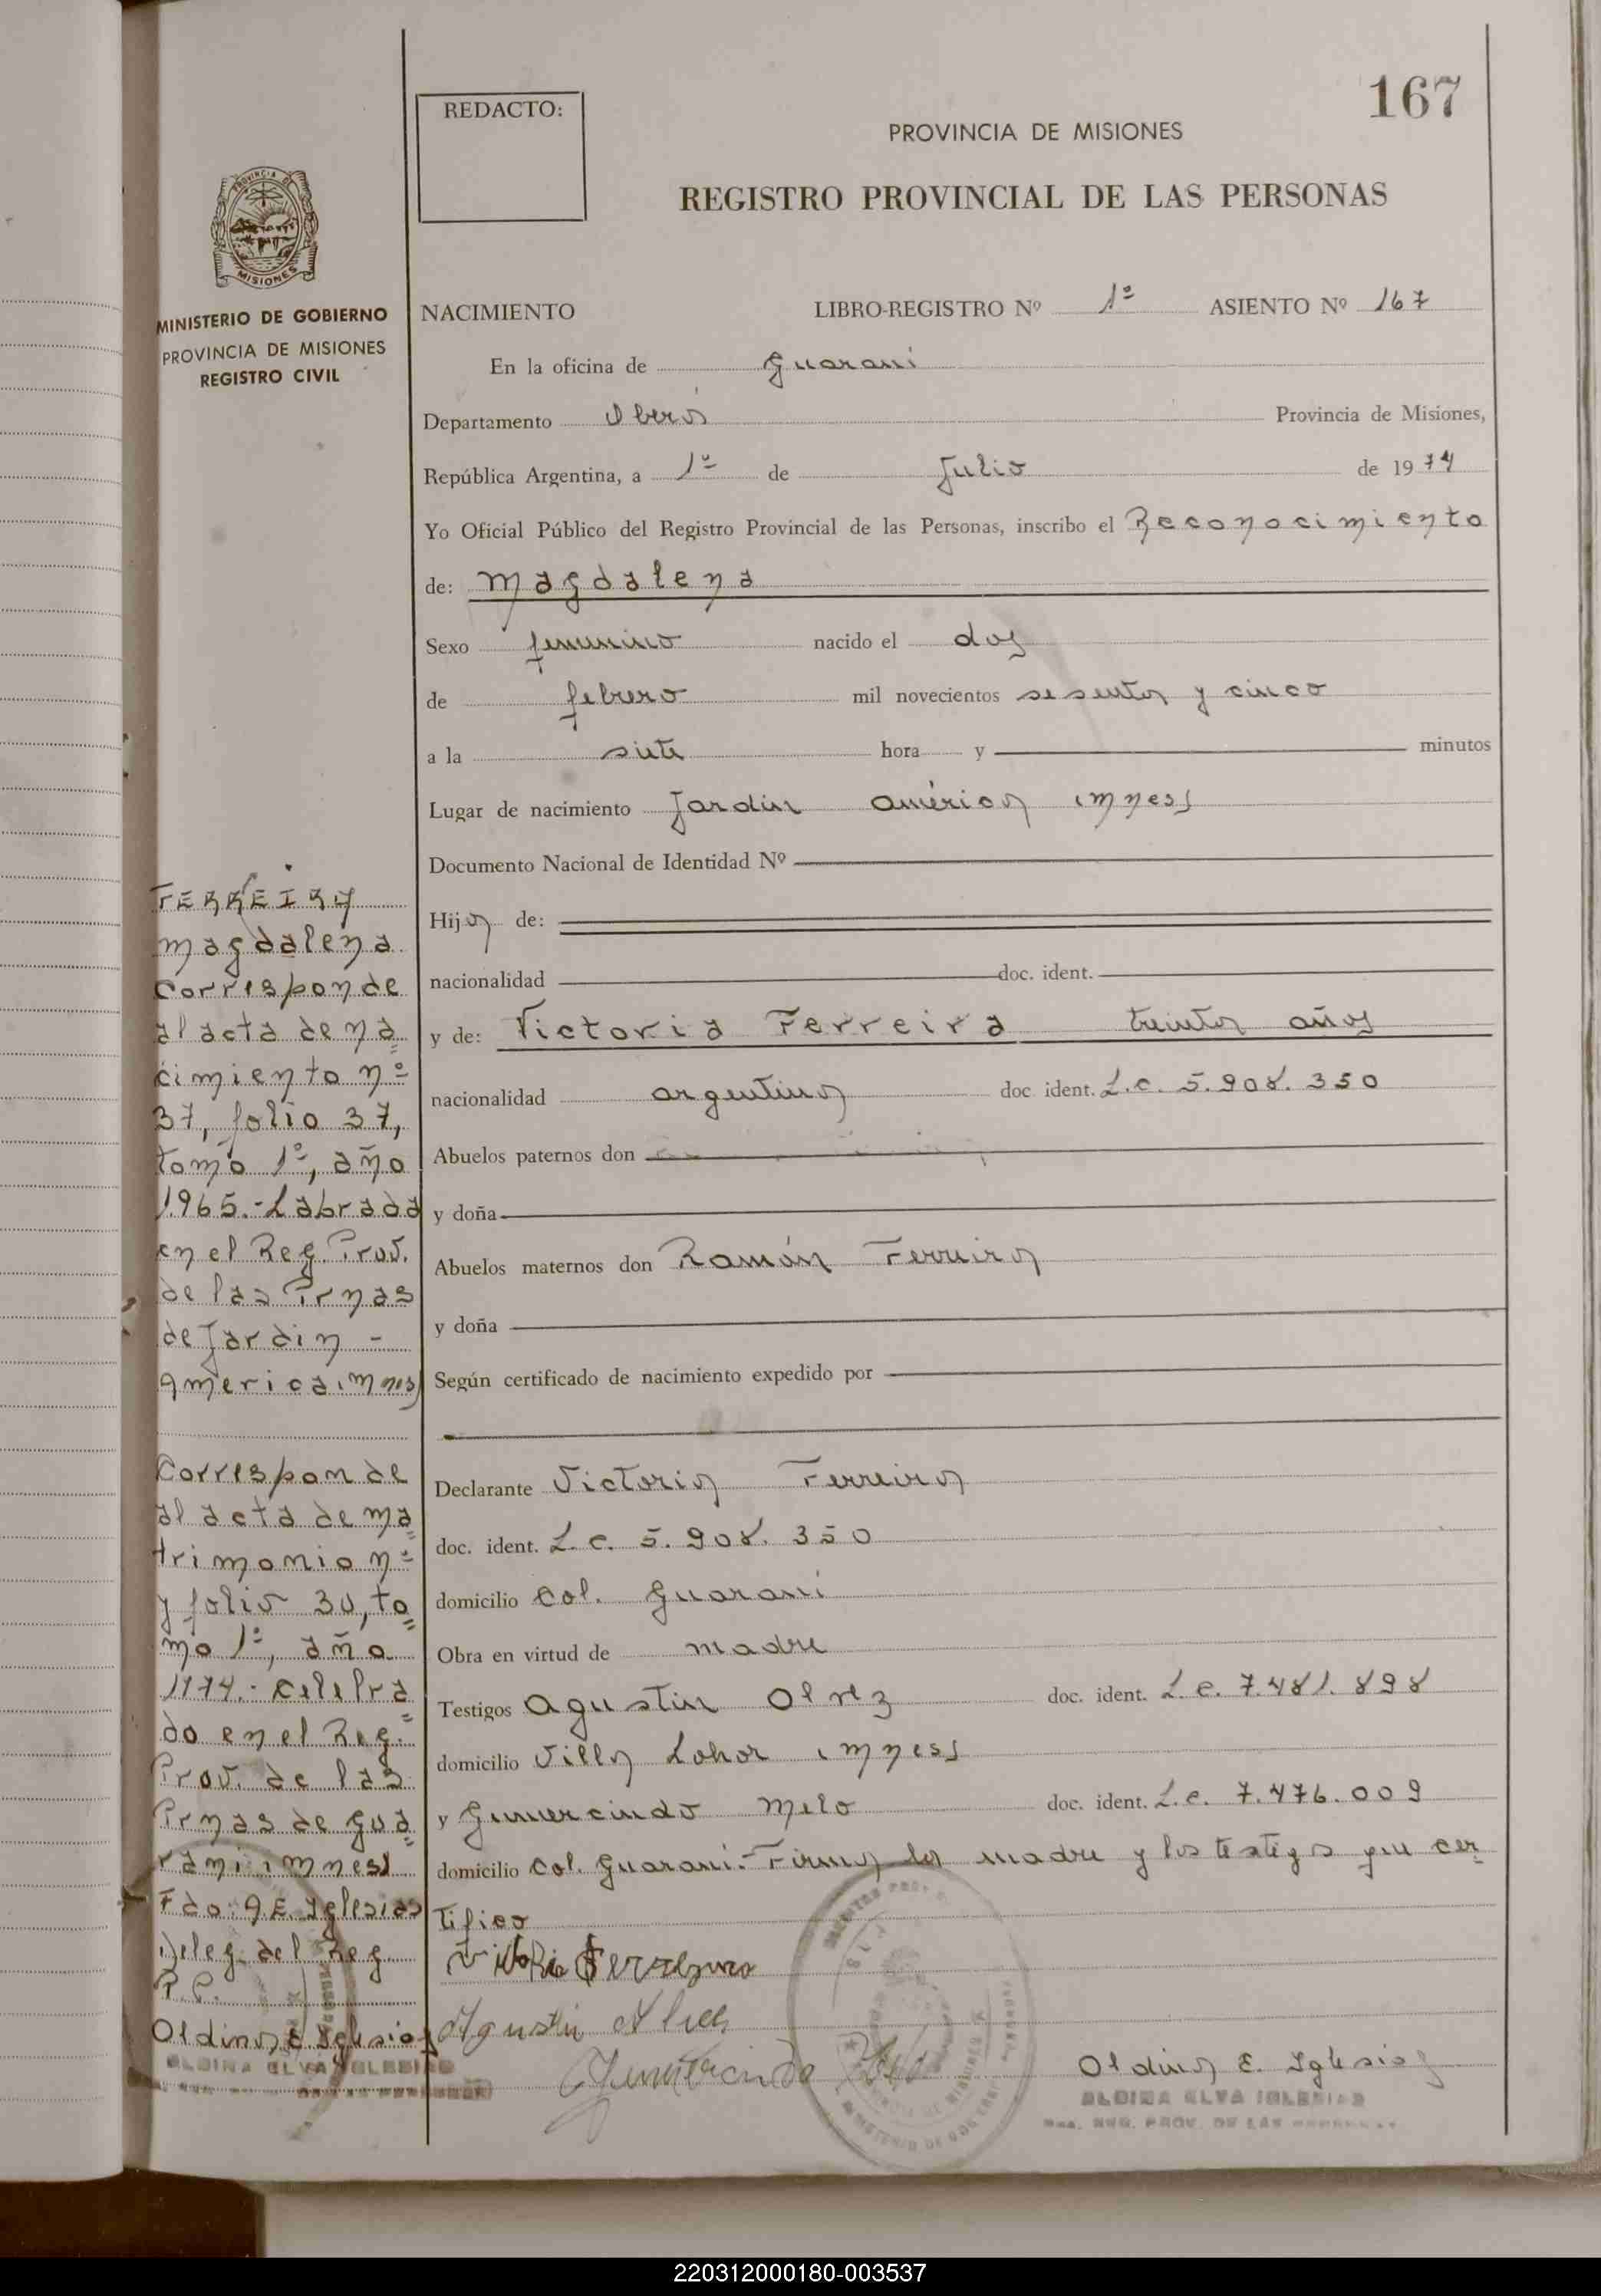 167
REDACTO:
PROVINCIA DE MISIONES
REGISTRO PROVINCIAL DE LAS PERSONAS
PROVINCIA DE
MISIONES
MINISTERIO DE GOBIERNO
PROVINCIA DE MISIONES
REGISTRO CIVIL
NACIMIENTO LIBRO-REGISTRO Nº 1º ASIENTO Nº 167
En la oficina de Guaraní
Departamento Oberá Provincia de Misiones,
República Argentina, a 1º de Julio de 1974
Yo Oficial Público del Registro Provincial de las Personas, inscribo el Reconocimiento
de: Magdalena
Sexo femenino nacido el dos
de febrero mil novecientos sesenta y cinco
a la siete hora y minutos
Lugar de nacimiento Jardin América (Mnes)
Documento Nacional de Identidad Nº
Hija de:
nacionalidad doc. ident.
y de: Victoria Ferreira treinta años
nacionalidad argentina doc ident. L.c. 5.908.350
Abuelos paternos don
y doña
Abuelos maternos don Ramón Ferreira
y doña
Según certificado de nacimiento expedido por
Declarante Victoria Ferreira
doc. ident. L.c. 5.908.350
domicilio Col. Guaraní
Obra en virtud de madre
Testigos Agustin doc. ident. L.e. 7.481.898
domicilio Villa (Mnes)
y Gumercindo Melo doc. ident. L.e. 7.476.009
domicilio Col. Guaraní.- Firma la madre y los testigos que cer
tifico
Agustin
Gumercindo
Oldina E. Iglesias
ELVA IGLESIAS
REG. PROV. DE LAS
FERREIRA
Magdalena
Corresponde
al acta de na
cimiento nº
37, folio 37,
tomo 1º, año
1965.- Labrada
en el Reg. Prov.
de las Prnas
de Jardin -
America (Mnes)
Corresponde
al acta de ma
trimonio nº
y folio 30, to
mo 1º, año
1974.- celebra
do en el Reg.
Prov. de las
Prnas de Gua
rani (Mnes)
Fdo: O.E. Iglesias
Deleg. del Reg
P.P.
Oldina E. Iglesias
ELVA IGLESIAS
220312000180-003537